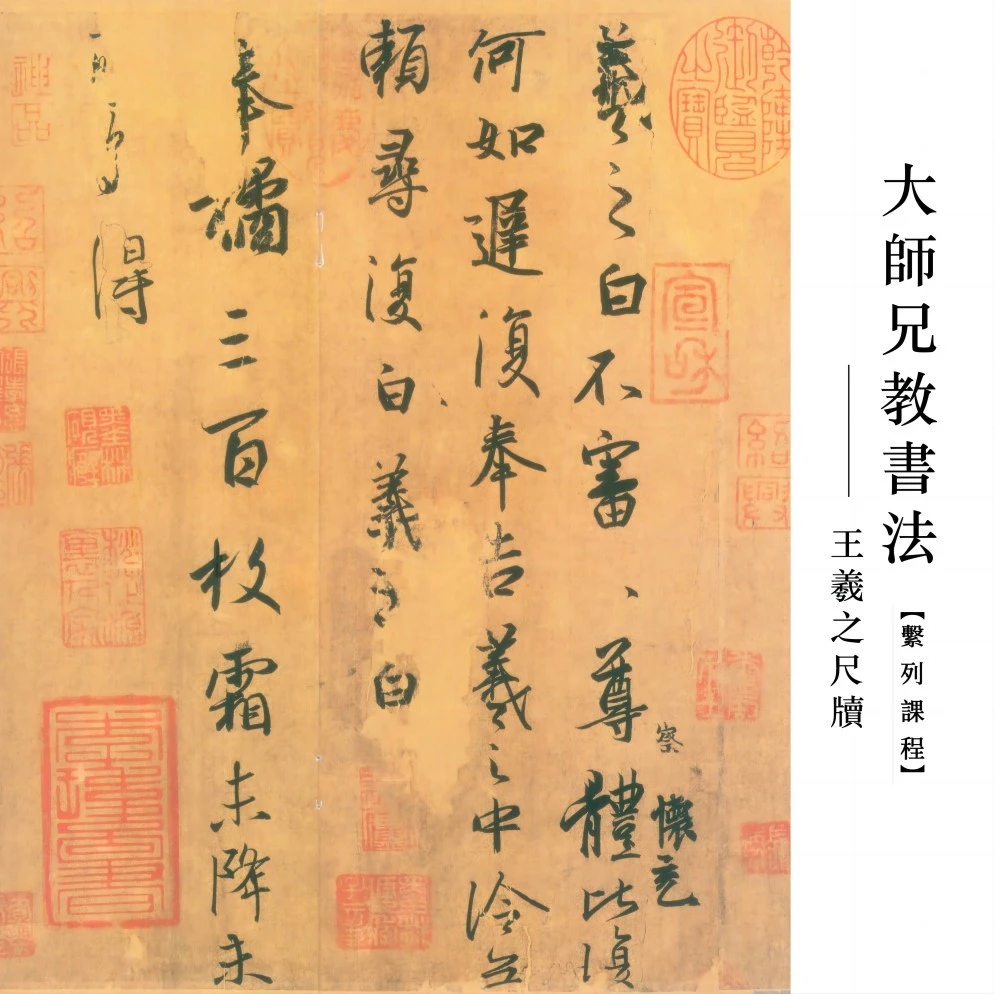 大師兄教書法
【繫列課程】
——王羲之尺牘
乾隆御覽之寶
宣和
紹興
察
懷充
羲之白不審、尊體比復
何如遲復奉告羲之中冷無
賴尋復白羲之白
奉橘三百枚霜未降未
可多得
神品